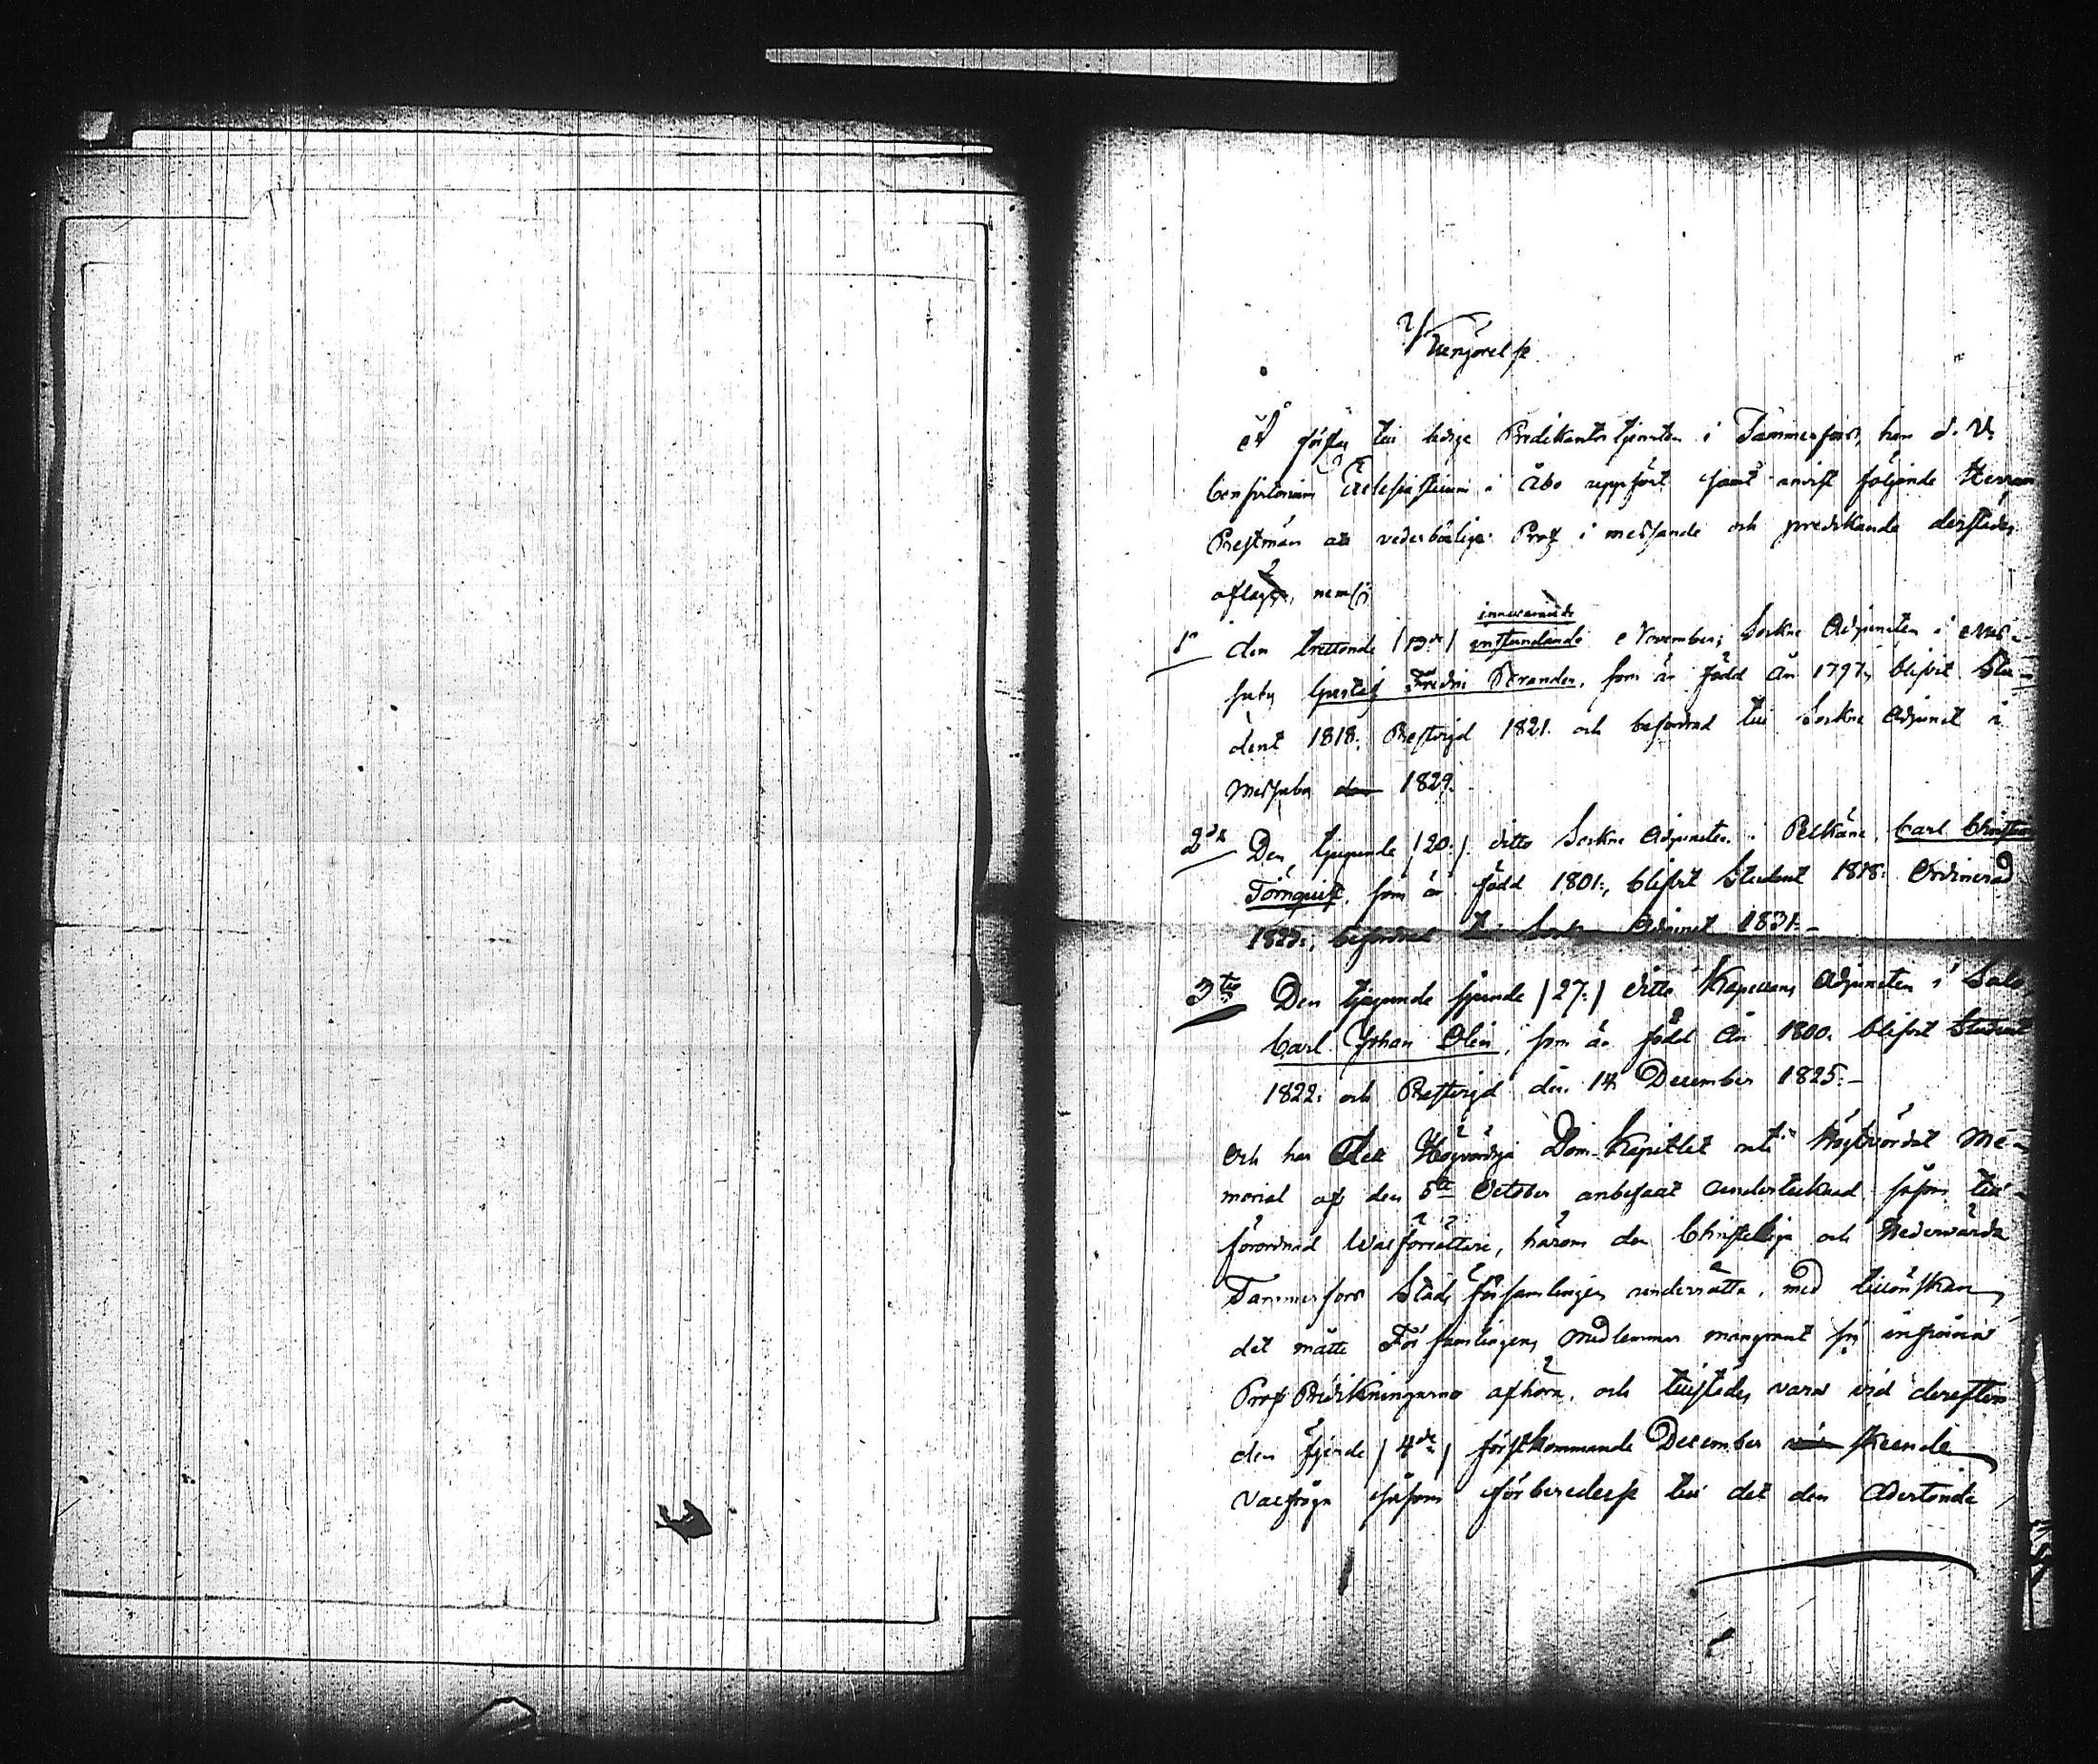 Kungörelse
På förslag till lediga Predikantstjensten i Tammerfors, har d. V.
Consistorium Ecclesiasticum i Åbo uppfört samt anvist följande Herrar
Prestmän att vederbörliga Prof i messande och predikande derstedes
aflägga, neml:
innevarande
1º den trettonde /13de/ instundande November, Sockne Adjuncten i Mes-
suby Gustaf Fredric Strander, som är född År 1797, blifvit Stu-
dent 1818. Prestvigd 1821. och befordrad till Sockne Adjunct i
Messuby den 1829.
2do Den tjugunde /20:/ ditto Sockne Adjuncten i Pelkäne Carl Christian
Törnquist, som är född 1801:, blifvit Student 1818: Ordinerad
1823:, befordrad till Sockne Adjunct 1831:-
3tio Den tjugunde sjunde /27:/ ditto Kapellans Adjuncten i Salo,
Carl Johan Olin, som är född År 1800. blifvit Student
1822: och Prestvigd den 14 December 1825:-
Och har Det Högvördiga Dom-Kapitlet uti Högtvördat Me-
morial af den 5te October anbefallt undertecknad, såsom till-
förordnad Valförrättare, härom den Christeliga och Hedervärda
Tammerfors Stads församlingen underrätta, med tillönskan,
det måtte Församlingens Medlemmar mangrant sig infinna
Prof Predikningarna afhöra, och tillstädes vara vid derefter
den fjerde /4de/ förstkommande December skeende
Valfråga såsom förberedelse till det den Adertonde